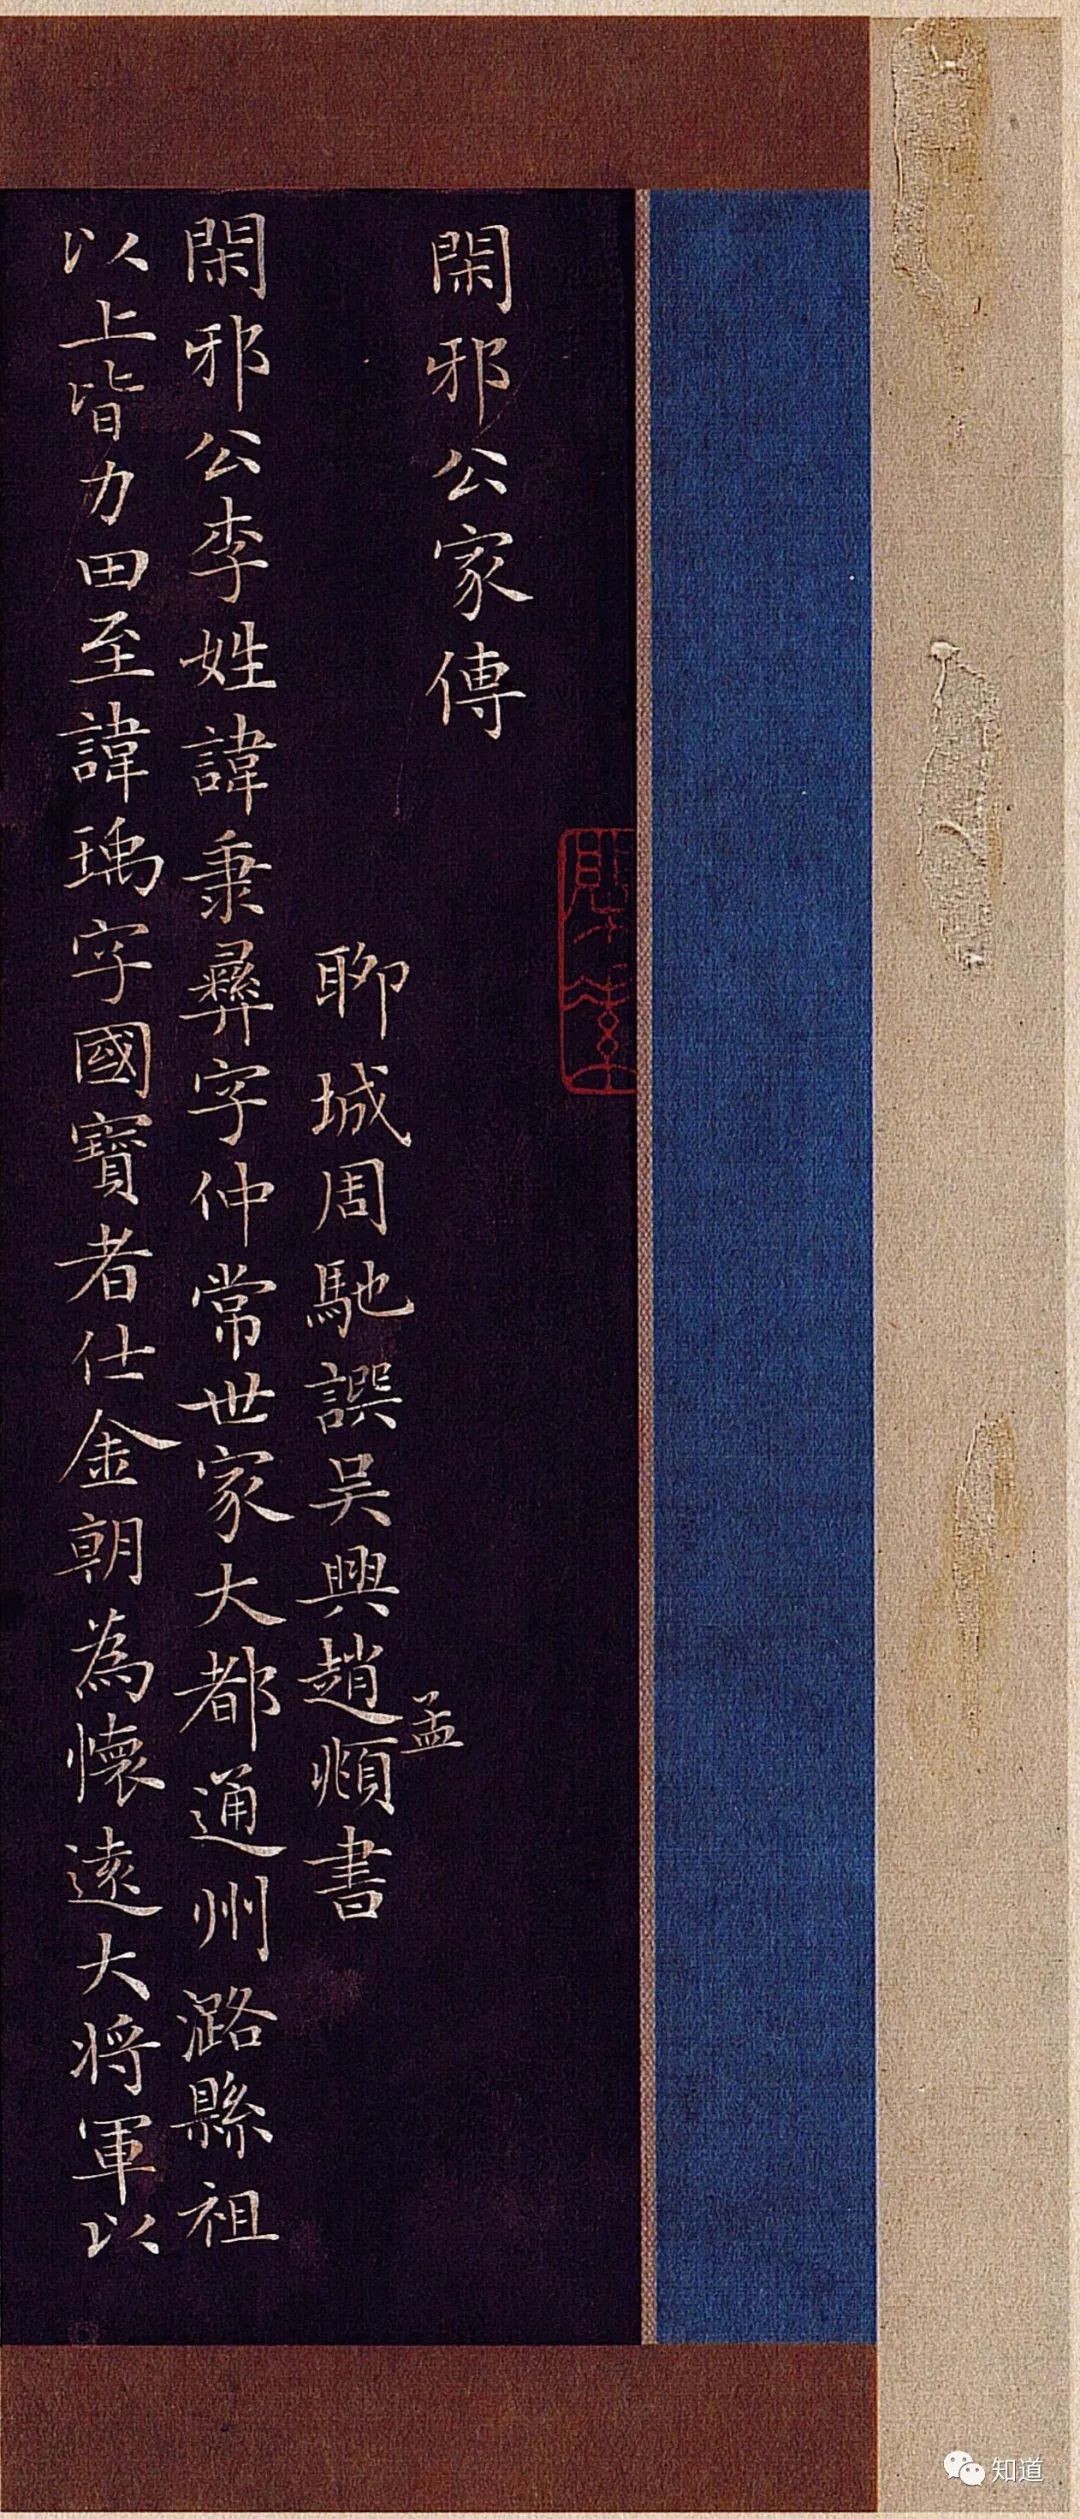 閑邪公家傳
聊城周馳譔吴興趙孟頫書
閑邪公李姓諱秉彝字仲常世家大都通州潞縣祖
以上皆力田至諱瑀字國寶者仕金朝為懷遠大將軍以
知道